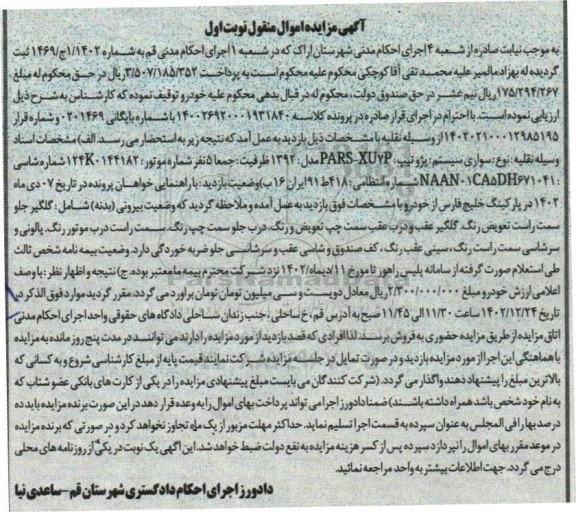 آگهی مزایده اموال منقول نوبت اول
به موجب نیابت صادره از شعبه ۴ اجرای احکام مدنی شهرستان اراک که در شعبه ۱ اجرای احکام مدنی قم به شماره ۱/۱۴۰۲ج/۱۴۶۹ ثبت
گردیده له بهزاد مالمیر علیه محمد تقی آقا کوچکی محکوم علیه محکوم است به پرداخت ۳/۵۰۷/۱۸۵/۳۵۲ ریال در حق محکوم له مبلغ
۱۷۵/۲۹۴/۲۶۷ ریال نیم عشر در حق صندوق دولت، محکوم له در قبال بدهی محکوم علیه خودرو توقیف نموده که کارشناس به شرح ذیل
ارزیابی نموده است. با احترام در اجرای قرار صادره در پرونده کلاسه ۱۴۰۰۲۶۹۲۰۰۰۱۹۳۱۸۴۰ با شماره بایگانی ۰۲۰۱۴۶۹ و شماره قرار
۱۴۰۲۰۲۱۰۰۰۱۲۹۸۵۱۹۵ از وسیله نقلیه با مشخصات ذیل بازدید به عمل آمد که نتیجه زیر به استحضار می رسد. الف) مشخصات اسناد
وسیله نقلیه: نوع: سواری سیستم: پژو تیپ: PARS-XU۷P مدل: ۱۳۹۲ ظرفیت: جمعا ۵ نفر شماره موتور: ۱۲۴K۰۱۴۴۱۸۲ شماره شاسی
: NAAN۰۱CA۵DH۶۷۱۰۴۱ شماره انتظامی: ۴۱۸ط۹۱ ایران ۱۶ ب) وضعیت بازدید: با راهنمایی خواهان پرونده در تاریخ ۰۷ دی ماه
۱۴۰۲ در پارکینگ خلیج فارس از خودرو با مشخصات فوق بازدید به عمل آمده و ملاحظه گردید که وضعیت بیرونی (بدنه) شامل: گلگیر جلو
سمت راست تعویض رنگ، گلگیر عقب و درب عقب سمت چپ تعویض و رنگ، درب جلو سمت چپ رنگ، سمت راست درب موتور رنگ، پالونی و
سرشاسی سمت راست رنگ، سینی عقب رنگ، کف صندوق و شاسی عقب و سرشاسی جلو ضربه خوردگی دارد. وضعیت بیمه نامه شخص ثالث
طی استعلام صورت گرفته از سامانه پلیس راهور تا مورخ ۱۱/دیماه/۱۴۰۲ نزد شرکت محترم بیمه ما معتبر بوده. ج) نتیجه و اظهار نظر: با وصف
اعلامی ارزش خودرو مبلغ ۲/۳۰۰/۰۰۰/۰۰۰ ریال معادل دویست و سی میلیون تومان تومان براورد می گردد. مقرر گردید موارد فوق الذکر در
تاریخ ۱۴۰۲/۱۲/۲۴ ساعت ۱۱/۳۰ الی ۱۱/۴۵ صبح به آدرس قم، خ ساحلی، جنب زندان ساحلی دادگاه های حقوقی واحد اجرای احکام مدنی
اتاق مزایده از طریق مزایده حضوری به فروش برسد. لذا افرادی که قصد بازدید از مورد مزایده را دارند می توانند در مدت پنج روز مانده به مزایده
با هماهنگی این اجرا از مورد مزایده بازدید و در صورت تمایل در جلسه مزایده شرکت نمایند قیمت پایه از مبلغ کارشناسی شروع و به کسانی که
بالاترین مبلغ را پیشنهاد دهند واگذار می گردد. (شرکت کنندگان می بایست مبلغ پیشنهادی مزایده را در یکی از کارت های بانکی عضو شتاب که
به نام خود شخص باشد همراه داشته باشند) ضمنا دادورز اجرا می تواند پرداخت بهای اموال را به وعده قرار دهد در این صورت برنده مزایده باید ده
درصد بها را فی المجلس به عنوان سپرده به قسمت اجرا تسلیم نماید. حداکثر مهلت مزبور از یک ماه تجاوز نخواهد کرد و در صورتی که برنده مزایده
در موعد مقرر بهای اموال را نپردازد سپرده پس از کسر هزینه مزایده به نفع دولت ضبط خواهد شد. این آگهی یک نوبت در یکی از روزنامه های محلی
درج می گردد. جهت اطلاعات بیشتر به واحد مراجعه نمائید.
دادورز اجرای احکام دادگستری شهرستان قم-ساعدی نیا